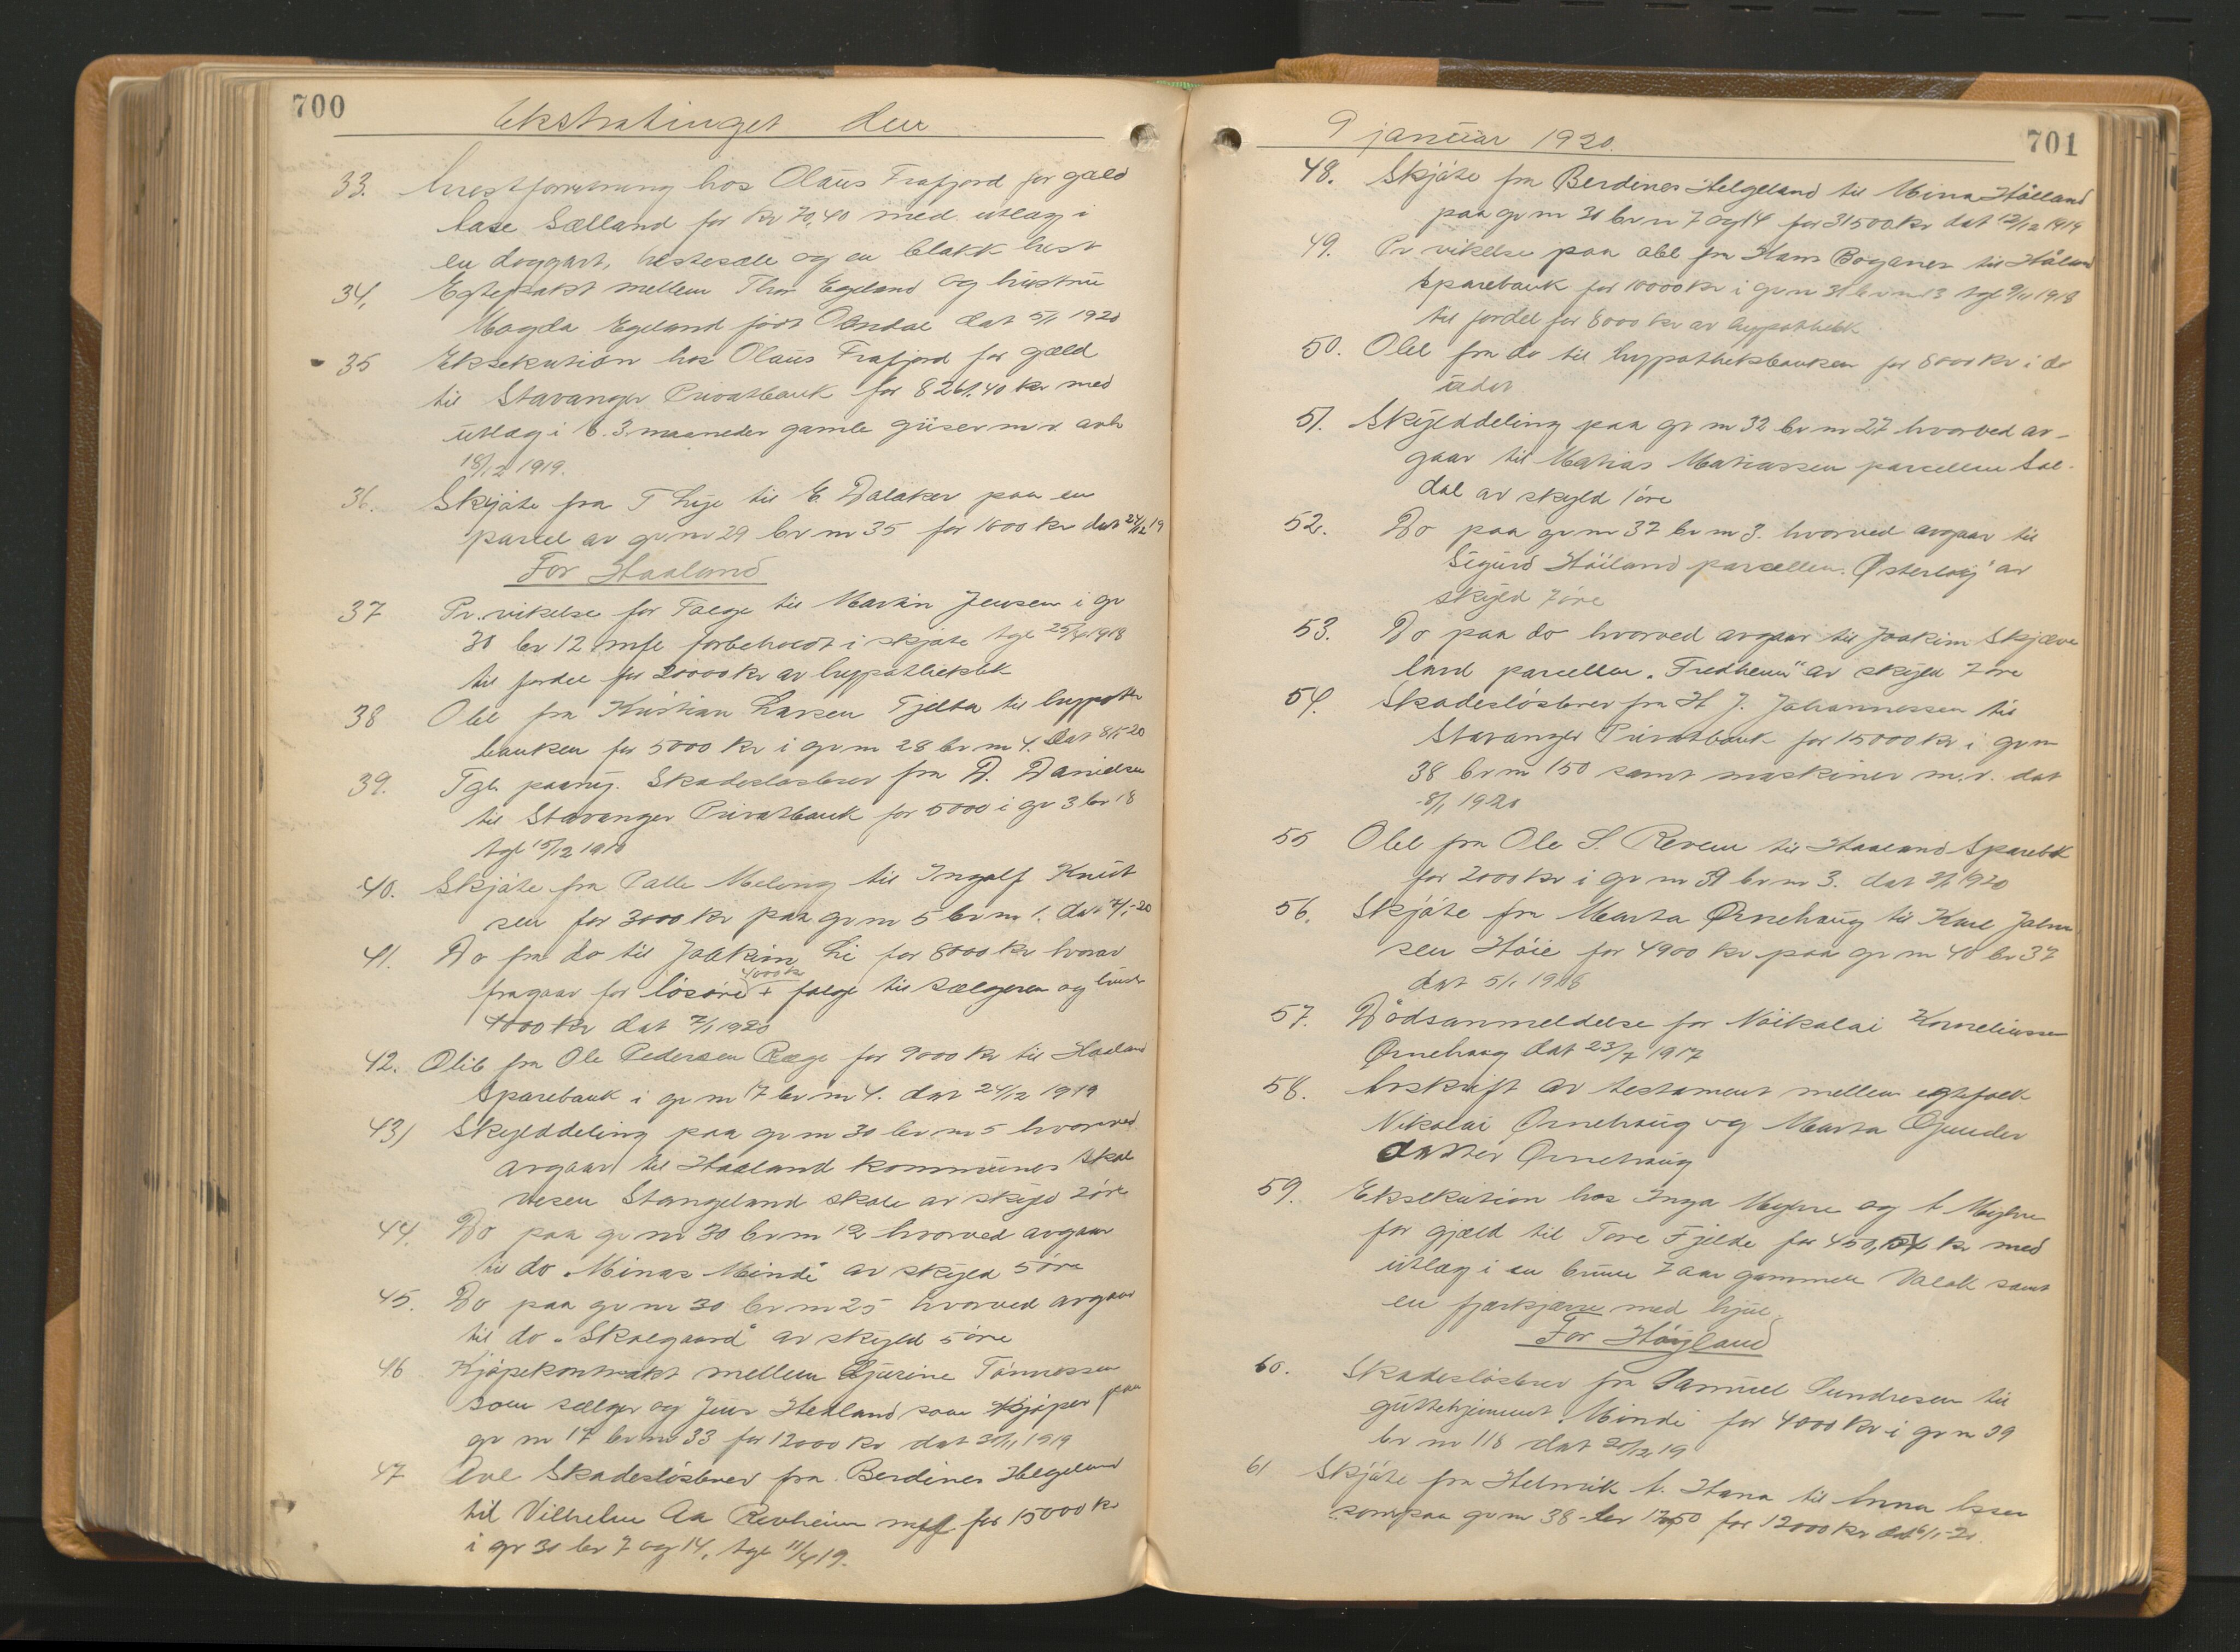 700
Ekstratinget den
33. Arrestforretning hos Olaüs Frafjord for gæld
Aase Sælland for Kr 70,40 med utlæg i
en doggart, hestesæle og en blakk hest
34, Egtepakt mellem Thor Egeland og hüstrü
Magda Egeland født Obrestad dat 5/1 1920
35 Eksekütion hos Olaüs Frafjord for gæld
til Stavanger Privatbank for 8261.40 kr med
ütlæg i 6. 3 maaneder gamle griser m.v. avh
18/12 1919.
36. Skjøte fra T Lye til E. Dalaker paa en
parcel av gr nr 29 br nr 35 for 1000 kr dat 24/12 19
For Haaland
37 Pr. vikelse for Falge til Martin Jensen i gr
30 br 12 mfl forbeholdt i skjøte tgl 25/4 1918
til fordel for 20000 kr av hypothekbk
38 Obl fra Kristian Larsen Tjelta til hypoth
banken for 5000 kr i gr nr 28 br nr 4. dat 8/1-20
39. Tgl. paany. Skadesløsbrev fra D. Danielsen
til Stavanger Privatbank for 5000 i gr 3 br 18
tgl 15/12 1910
40. Skjøte fra Palle Meling til Ingolf Knüt
sen for 3000 kr paa gr nr 5 br nr 1. dat 7/1-20
41. Do fra do til Joakim Li for 8000 kr hvorav
4000 kr
fragaar for løsøre + folge til sælgeren og hüstr
4000 kr dat 7/1 1920
42. Obl fra Ole Pedersen Ræge for 9000 kr til Haaland
Sparebank i gr nr 17 br nr 4. dat 24/12 1919
43) Skylddeling paa gr nr 30 br nr 5 hvorved
avgaar til Haaland kommünes skol
vesen Stangeland skole av skyld 2 øre
44. Do paa gr nr 30 br nr 12 hvorved avgaar
til do „Minas Minde" av skyld 5 øre
45. Do paa gr nr 30 br nr 25 hvorved avgaar
til do „Skolegaard" av skyld 5 øre
46 Kjøpekontrakt mellem Gjürine Tønnessen
som sælger og Jens Hetland som kjøper paa
gr nr 17 br nr 33 for 12000 kr dat 30/11 1919
47 Avl Skadesløsbrev fra Berdines Helgeland
til Vilhelm Aa Revheim mfl for 15000 kr
i gr 30 br 7 og 14, tgl 11/4 19.
9 janüar 1920.
701
48. Skjøte fra Berdines Helgeland til Mina Håland
paa gr nr 30 br nr 7 og 14 for 31500 kr dat 12/12 1919
49. Pr vikelse paa obl fra Hans Boganes til Håland
Sparebank for 10000 kr i gr nr 31 br nr 13 tgl 9/11 1918
til fordel for 8000 kr av hypothekbk
50. Obl fra do til hypothekbanken for 8000 kr i do
üdat
51. Skylddeling paa gr nr 32 br nr 27 hvorved av-
gaar til Matias Matiassen parcellen Sol-
dal av skyld 1 øre
52. Do paa gr nr 37 br nr 3. hvorved avgaar til
Sigürd Høiland parcellen „Østerhoj" av
skyld 7 øre
53. Do paa do hvorved avgaar til Joakim Skjæve
land parcellen „Fredheim" av skyld 7 øre
54. Skadesløsbrev fra H J. Johannessen til
Stavanger Privatbank for 15000 kr i gr nr
38 br nr 150 samt maskiner m.v. dat
8/1 1920
55 Obl fra Ole S. Reven til Haaland Sparebk
for 2000 kr i gr nr 39 br nr 3. dat 3/1 1920
56. Skjøte fra Marta Ørnehaüg til Karl Johan
sen Høie for 4900 kr paa gr nr 40 br 37
dat 5/1 1918
57. Dødsanmeldelse for Nikolai Korneliüssen
Ørnehaüg dat 23/7 1917
58. Avskrift av testament mellem egtefolk
Nikolai Ørnehaüg og Marta Gunder
datter Ørnehaüg
59. Eksekütion hos Inga Myhre og A Myhre
for gjæld til Tore Fjelde for 450,54 kr med
ütlæg i en brün 7 aar gammel Valak samt
en fjærkjærre med hjül.
For Høyland
60. Skadesløsbrev fra Samüel Sundresen til
güttehjemmet „Minde" for 4000 kr i gr nr 39
br nr 118 dat 20/12 19
61 Skjøte fra Helmik A. Hana til Anna Assen
som paa gr nr 38 br 1750 for 12000 kr dat 6/1-20.